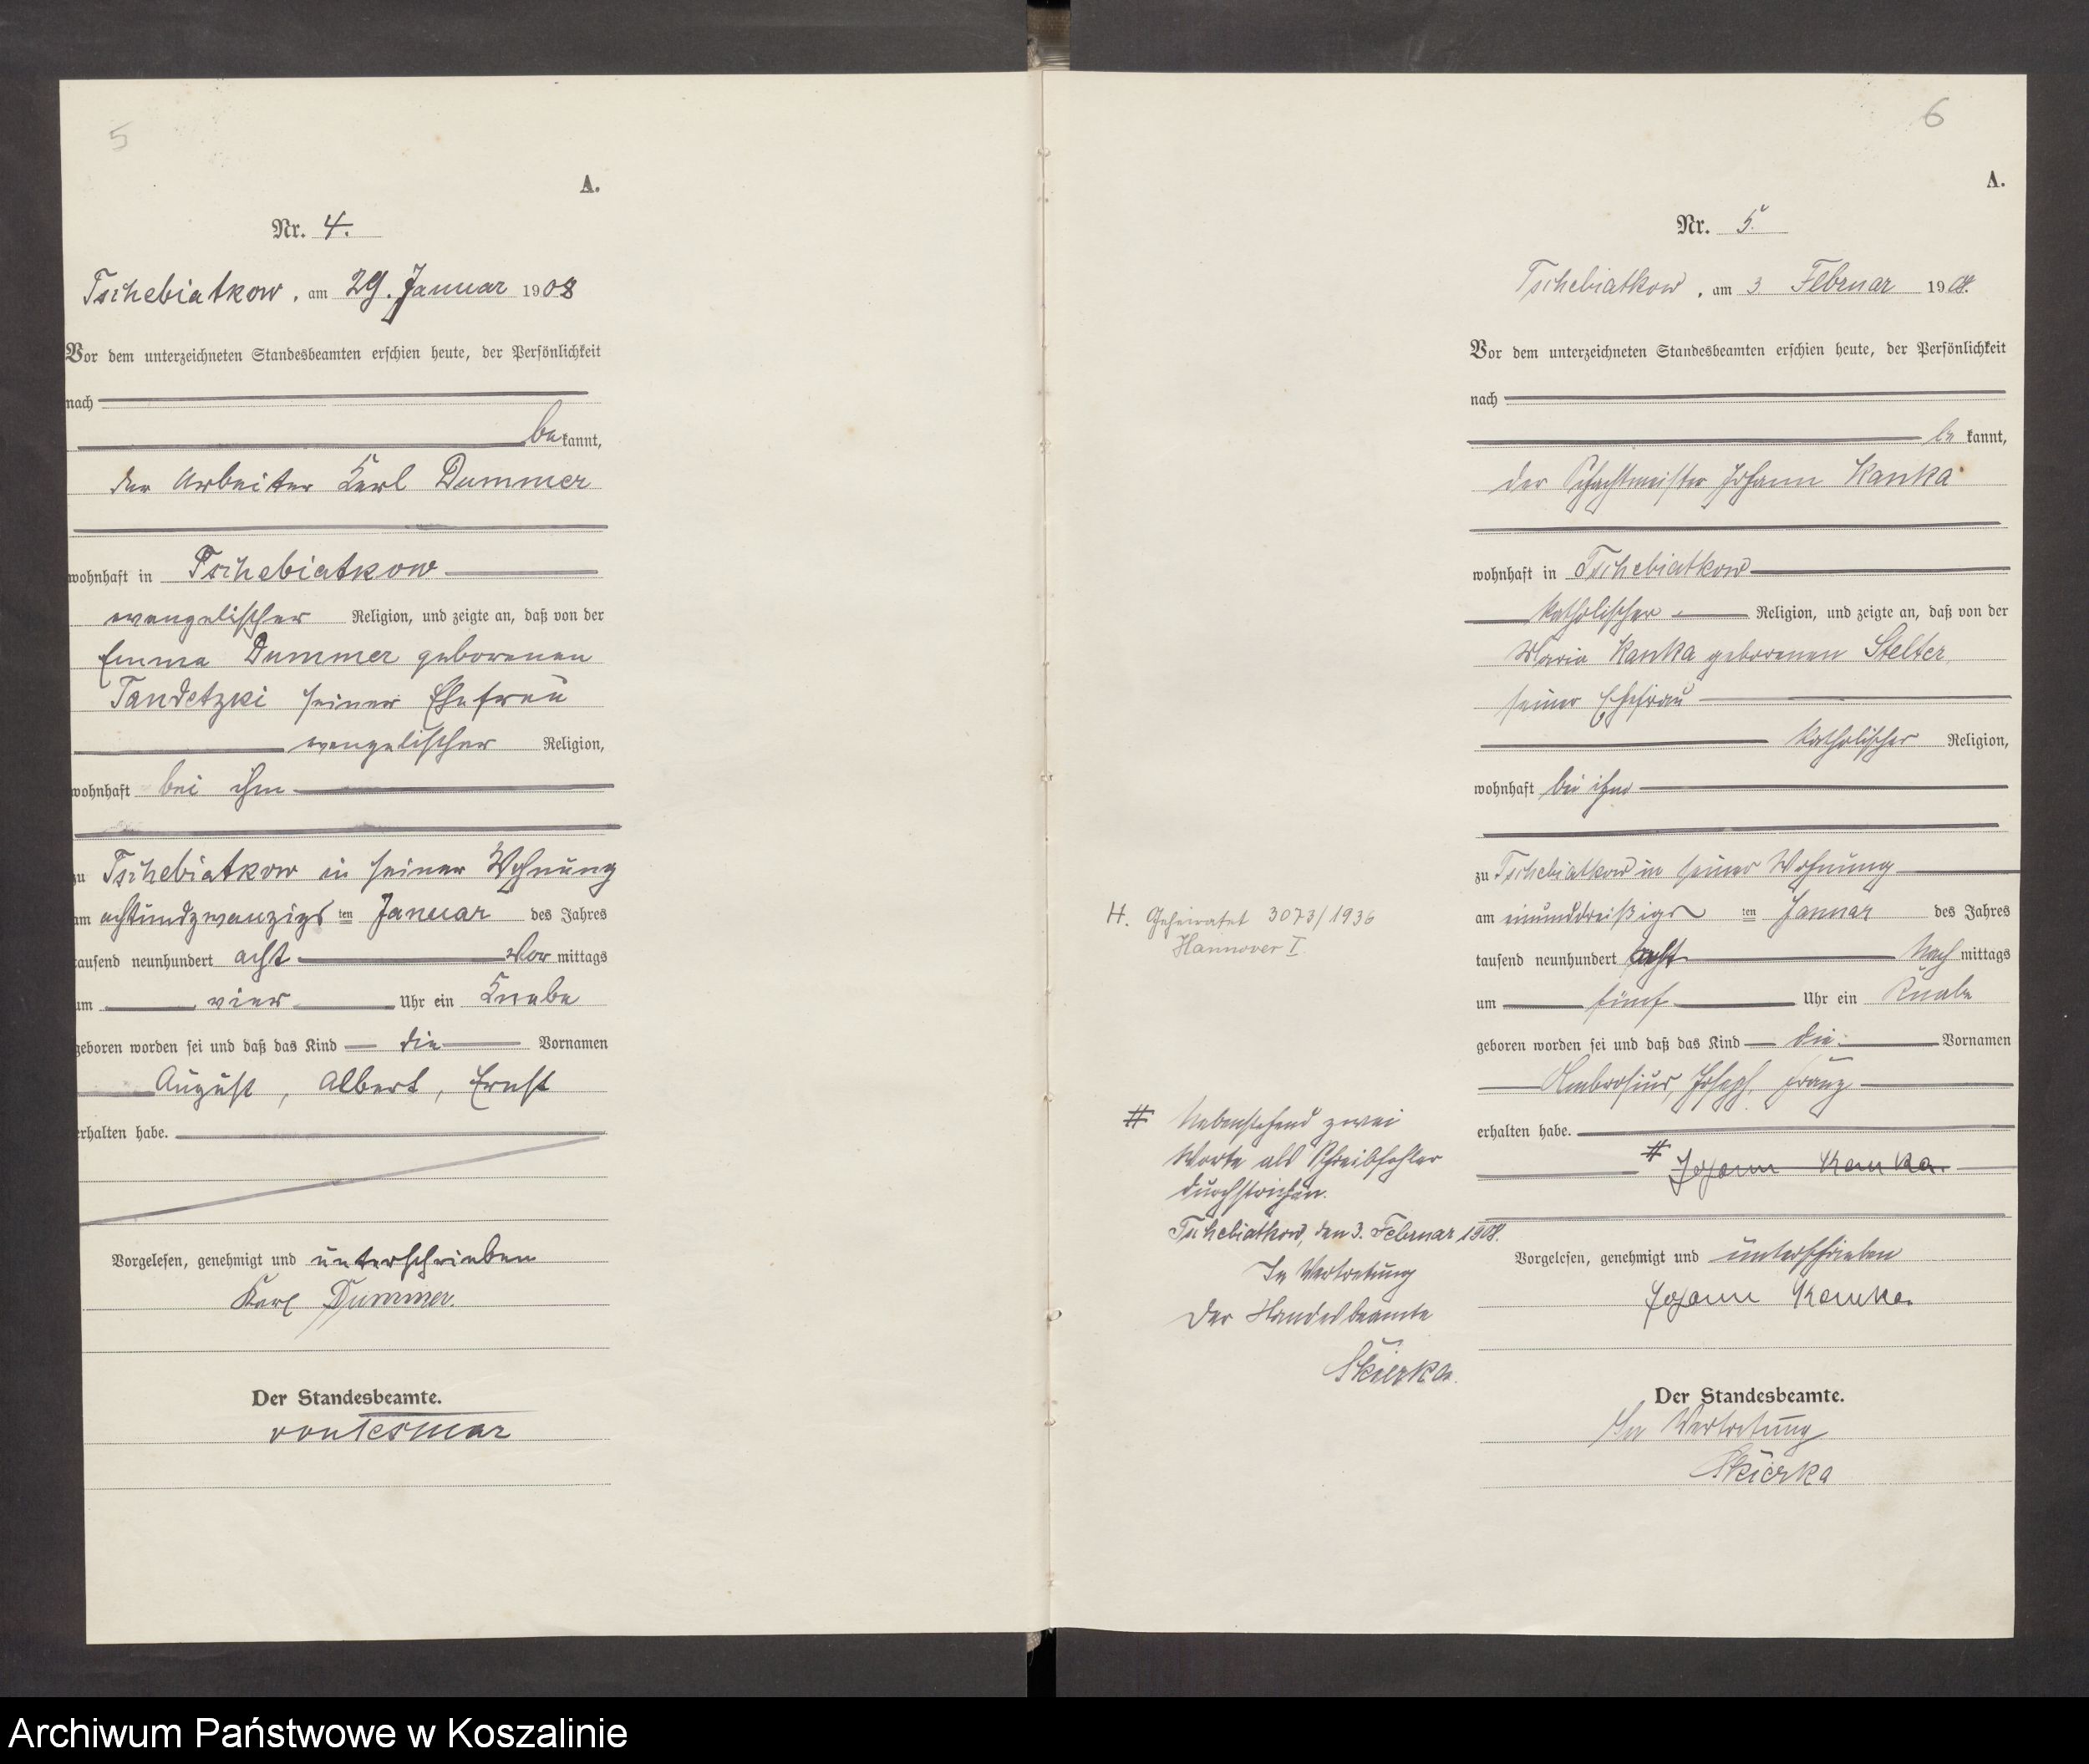 5
A.
Nr. 4.
Tschebiatkow, am 29. Januar 1908
Vor dem unterzeichneten Standesbeamten erschien heute, der Persönlichkeit
nach
bekannt,
der Arbeiter Karl Dummer
wohnhaft in Tschebiatkow
evangelischer Religion, und zeigte an, daß von der
Emma Dummer geborenen
Tandetzki seiner Ehefrau
evangelischer Religion,
wohnhaft bei ihm
zu Tschebiatkow in seiner Wohnung
am achtundzwanzigsten Januar des Jahres
tausend neunhundert acht Vormittags
um vier Uhr ein Knabe
geboren worden sei und daß das Kind die Vornamen
August, Albert, Ernst
erhalten habe.
Vorgelesen, genehmigt und unterschrieben
Karl Dummer.
Der Standesbeamte.
von Tesmar
6
A.
Nr. 5.
Tschebiatkow, am 3 Februar 1908.
Vor dem unterzeichneten Standesbeamten erschien heute, der Persönlichkeit
nach
bekannt,
der Schachtmeister Johann Kanka
wohnhaft in Tschebiatkow
katholischer Religion, und zeigte an, daß von der
Maria Kanka geborenen Stelter,
seiner Ehefrau
katholischer Religion,
wohnhaft bei ihm
zu Tschebiatkow in seiner Wohnung
am einunddreißigsten Januar des Jahres
tausend neunhundert acht Nachmittags
um fünf Uhr ein Knabe
geboren worden sei und daß das Kind die Vornamen
Ambrosius, Joseph, Franz
erhalten habe.
# Johann Kanka.
Vorgelesen, genehmigt und unterschrieben
Johann Kanka.
Der Standesbeamte.
In Vertretung
Skierka
H. Geheiratet 3073/1936
Hannover I.
# Nebenstehend zwei
Worte als Schreibfehler
durchstrichen.
Tschebiatkow, den 3. Februar 1908.
In Vertretung
Der Standesbeamte
Skierka.
Archiwum Państwowe w Koszalinie